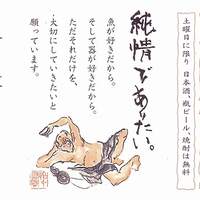 土曜日に限り 日本酒、瓶ビール、焼酎は無料
純情でありたい。
魚が好きだから。
そして器が好きだから。
ただそれだけを、
大切にしていきたいと
願っています。